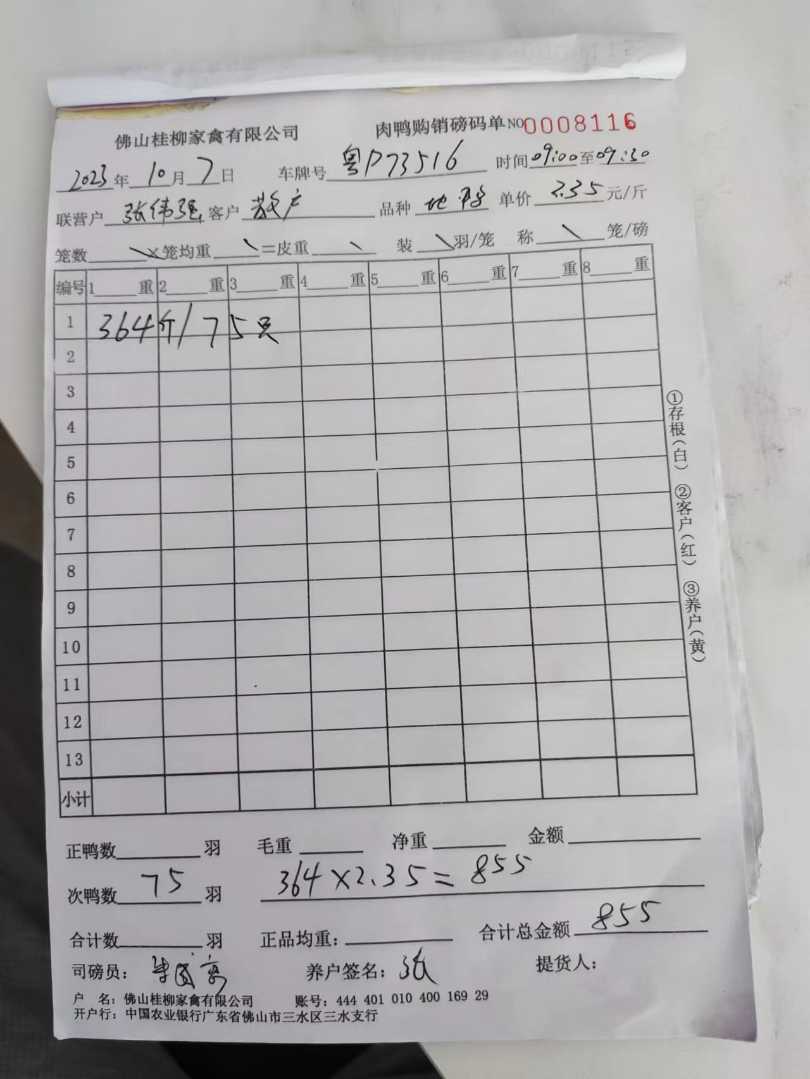 佛山桂柳家禽有限公司 肉鸭购销磅码单 NO 0008116
2023年10月7日 车牌号 粤P73516 时间 09:00至09:30
联营户 张伟强 客户 散户 品种 单价 2.35元/斤
笼数 \×笼均重 \=皮重 \ 装 \羽/笼 称 \ 笼/磅
编号 1 重 2 重 3 重 4 重 5 重 6 重 7 重 8 重
1 364斤/75只
2
3
4
5
6
7
8
9
10
11
12
13
小计
①存根(白) ②客户(红) ③养户(黄)
正鸭数 羽 毛重 净重 金额
次鸭数 75 羽 364×2.35=855
合计数 羽 正品均重: 合计总金额 855
司磅员: 养户签名:张 提货人:
户 名: 佛山桂柳家禽有限公司 账号: 444 401 010 400 169 29
开户行: 中国农业银行广东省佛山市三水区三水支行